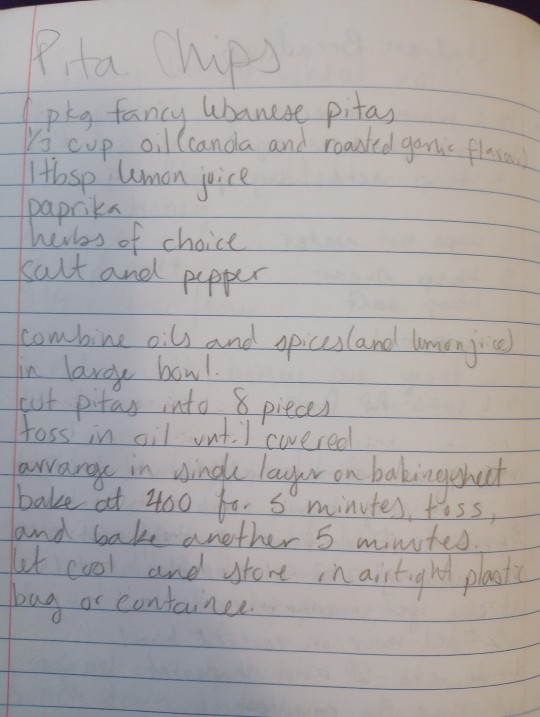 Pita Chips
1 pkg fancy lebanese pitas
1/3 cup oil (canola and roasted garlic flavour)
1 tbsp lemon juice
paprika
herbs of choice
salt and pepper
combine oils and spices (and lemon juice)
in large bowl.
cut pitas into 8 pieces
toss in oil until covered
arrange in single layer on baking sheet
bake at 400 for 5 minutes, toss,
and bake another 5 minutes.
let cool and store in airtight plastic
bag or container.